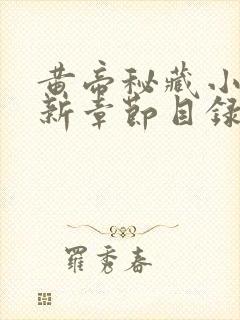 黄帝秘藏小
新章節目録
羅秀春